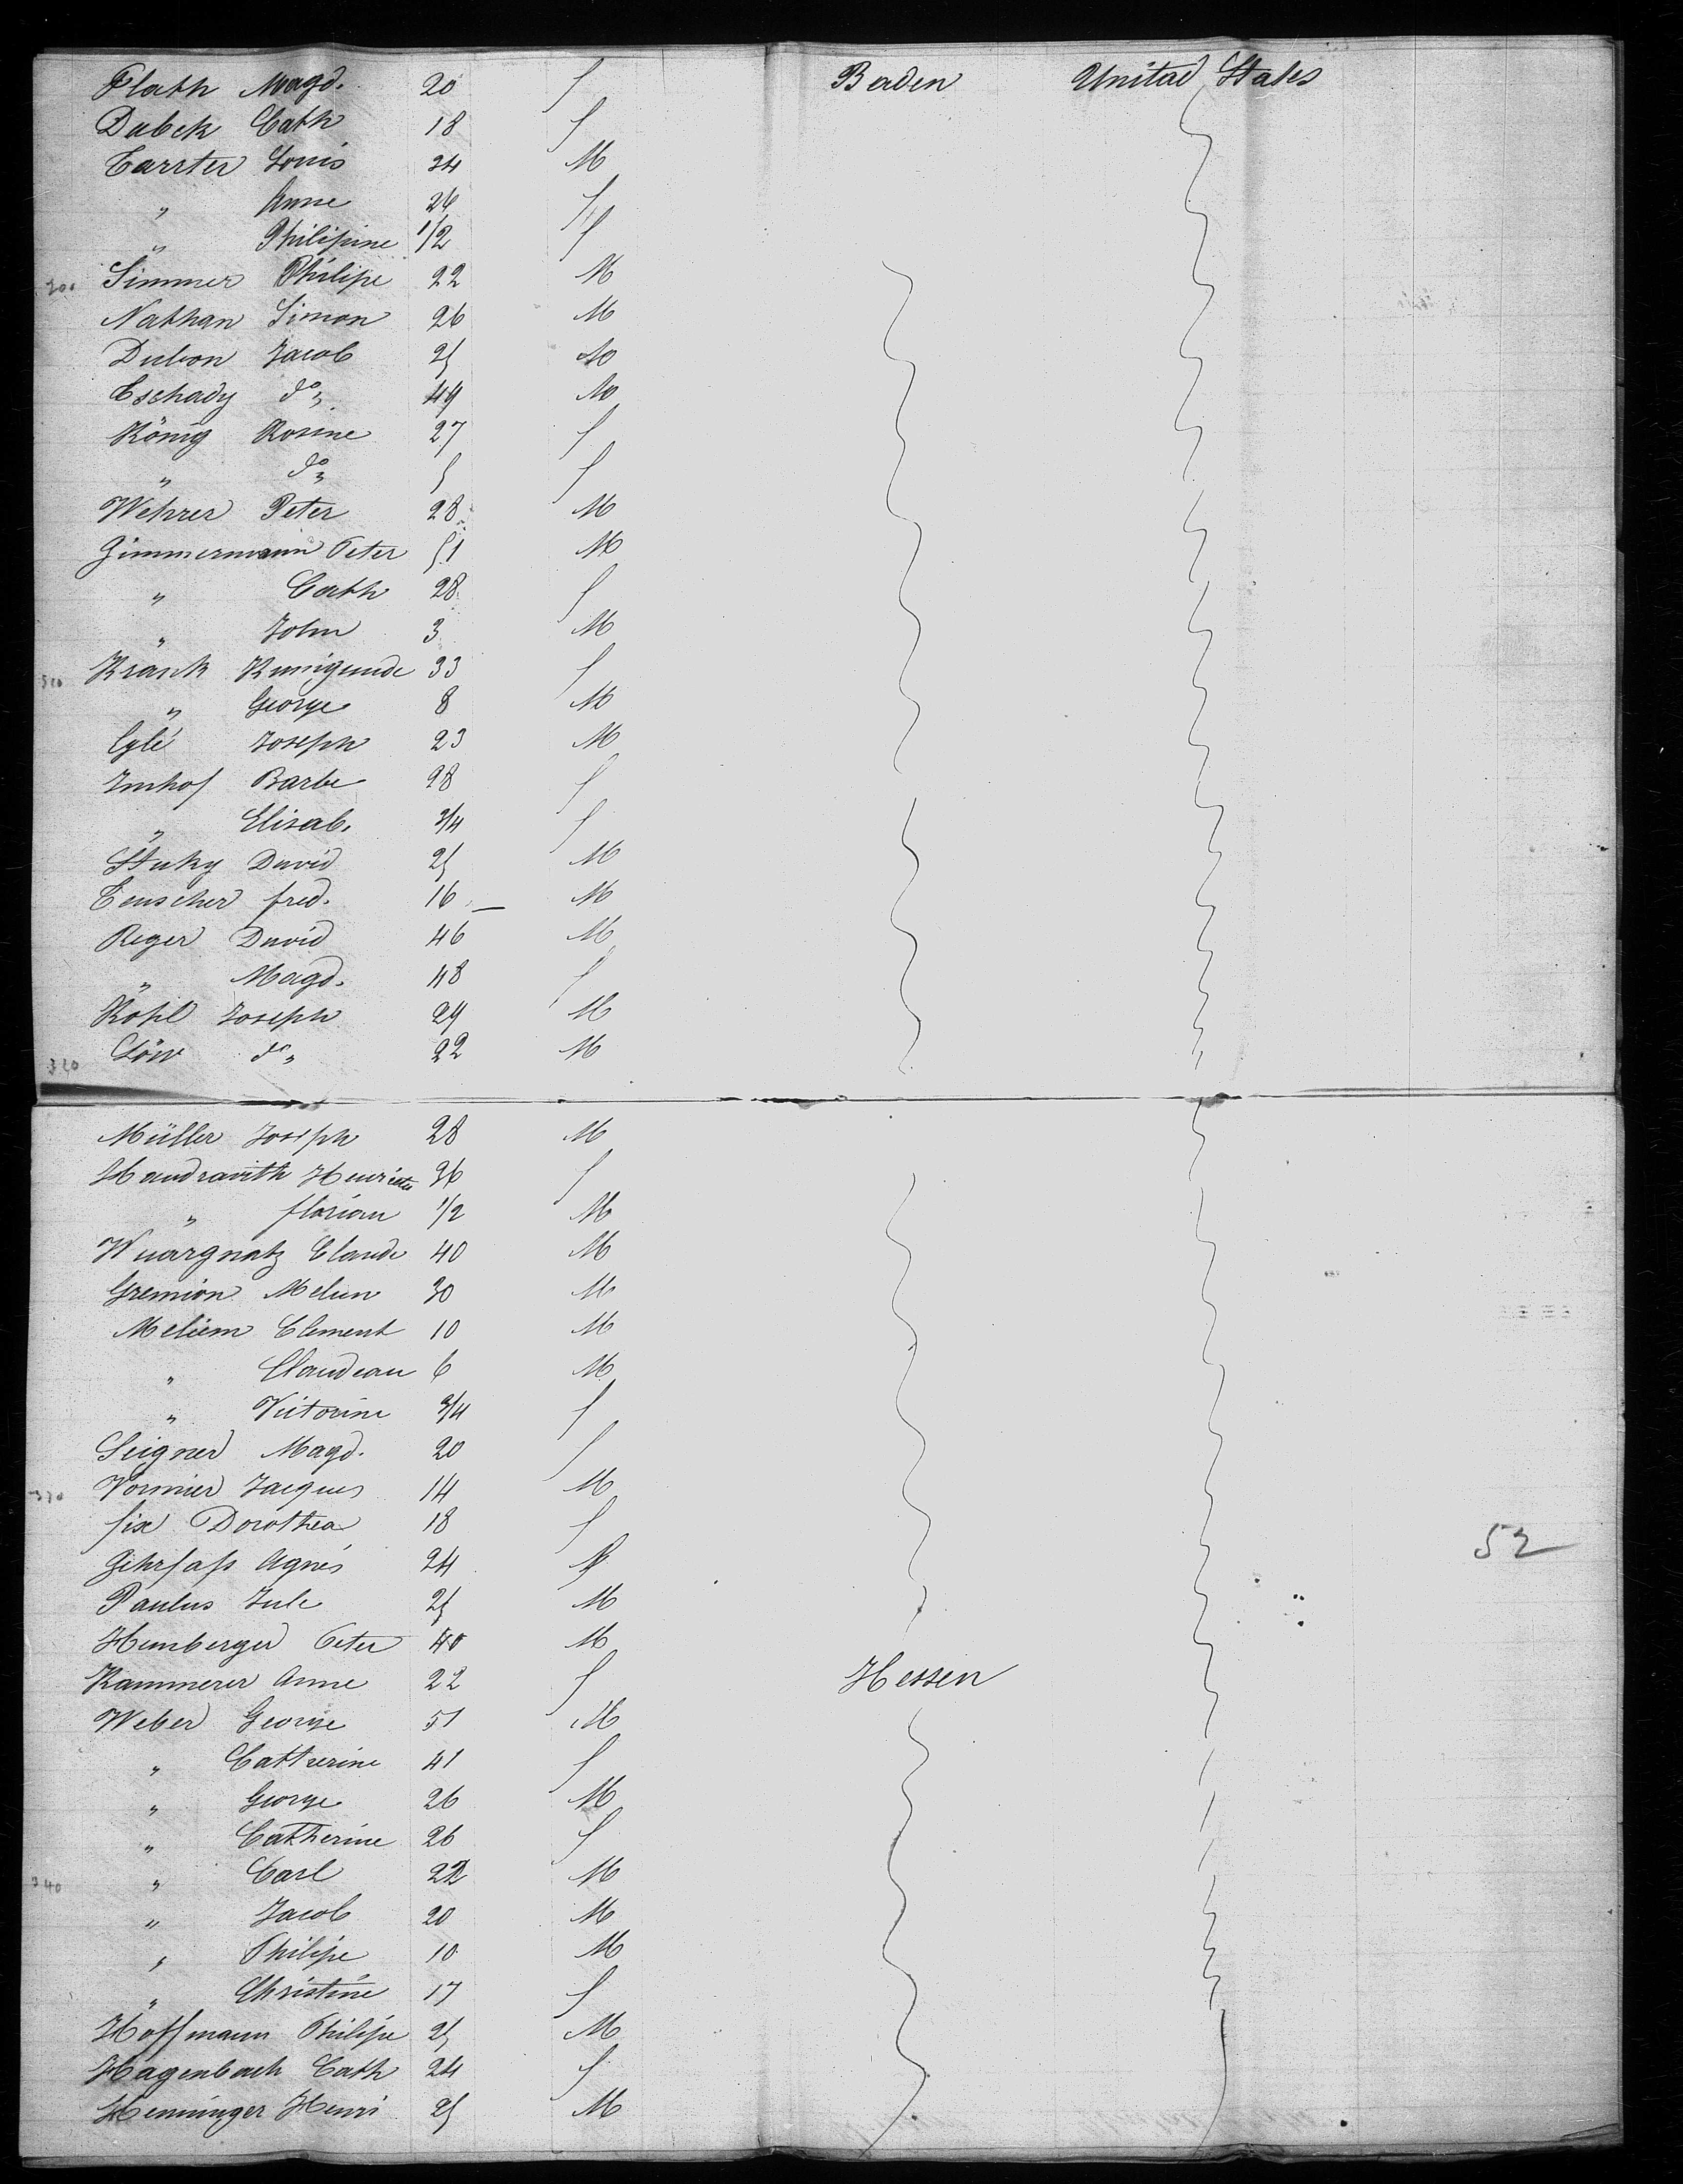 Flath Magd. 20 f Baden United States
Dubck Cath 18 f
Carrter Louis 24 M
" Anne 26 f
" Philipine 1/2 f
300 Simmer Philipe 22 M
Nathan Simon 26 M
Dubon Jacob 25 M
Eschady do 49 M
König Rosine 27 f
" do 5 f
Wehrer Peter 28 M
Zimmermann Peter 51 M
" Cath 28 f
" John 3 M
310 Krank Kunigunde 33 f
" George 8 M
Eglé Joseph 23 M
Imhof Barbe 28 f
" Elisab. 3/4 f
Stuky David 25 M
Teuscher fred. 16 — M
Reger David 46 M
" Magd. 48 f
Kohl Joseph 24 M
320 Löw do " 22 M
Müller Joseph 28 M
Handravith Henriette 36 f
" florian 1/2 M
Wuargnatz Claude 40 M
Gremion Melun 30 M
Meliem Clement 10 M
" Claudeau 6 M
" Victorine 3/4 f
Seigner Magd. 20 f
330 Vormier Jacques 14 M
fix Dorothea 18 f
52
Gehrfass Agnés 24 f
Paulus Jule 25 M
Hemberger Peter 40 M
Kammerer Anne 22 f Hessen
Weber George 51 M
" Catherine 41 f
" George 26 M
" Catherine 26 f
340 " Carl 22 M
" Jacob 20 M
" Philipe 10 M
" Christine 17 f
Hoffmann Philipe 25 M
Hagenbach Cath 24 f
Henninger Henri 25 M